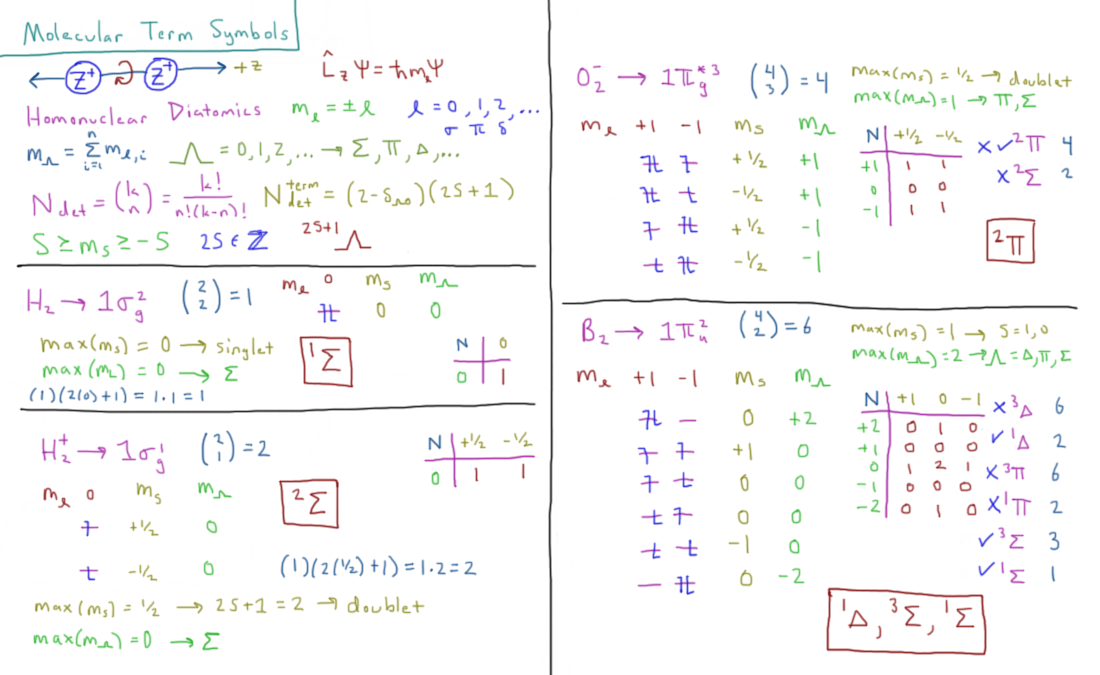 Molecular Term Symbols
Z⁺ Z⁺ +z
L̂_z Ψ = ħm_ℓΨ
Homonuclear Diatomics m_ℓ = ±ℓ ℓ = 0, 1, 2, ...
σ π δ
m_Λ = Σ_{i=1}^{n} m_{ℓ,i} Λ = 0, 1, 2, ... → Σ, Π, Δ, ...
N_det = (k n) = k!/n!(k-n)! N_det^term = (2-δ_Λ0)(2S+1)
S ≥ m_s ≥ -S 2S ∈ ℤ ^{2S+1}Λ
H₂ → 1σ_g² (2 2) = 1
m_ℓ 0 m_s m_Λ
⥮ 0 0
max(m_s) = 0 → singlet
max(m_L) = 0 → Σ
(1)(2(0)+1) = 1·1 = 1
¹Σ
N 0
0 1
H₂⁺ → 1σ_g¹ (2 1) = 2
N +½ -½
0 1 1
m_ℓ 0 m_s m_Λ
↿ +½ 0
⇂ -½ 0
²Σ
(1)(2(½)+1) = 1·2 = 2
max(m_s) = ½ → 2S+1 = 2 → doublet
max(m_Λ) = 0 → Σ
O₂⁻ → 1π_g*³ (4 3) = 4
max(m_s) = ½ → doublet
max(m_Λ) = 1 → Π, Σ
m_ℓ +1 -1 m_s m_Λ
⥮ ↿ +½ +1
⥮ ⇂ -½ +1
↿ ⥮ +½ -1
⇂ ⥮ -½ -1
N +½ -½
+1 1 1
0 0 0
-1 1 1
x ✓ ²Π 4
x ²Σ 2
²Π
B₂ → 1π_u² (4 2) = 6
max(m_s) = 1 → S = 1, 0
max(m_Λ) = 2 → Λ = Δ, Π, Σ
m_ℓ +1 -1 m_s m_Λ
⥮ — 0 +2
↿ ↿ +1 0
↿ ⇂ 0 0
⇂ ↿ 0 0
⇂ ⇂ -1 0
— ⥮ 0 -2
N +1 0 -1
+2 0 1 0
+1 0 0 0
0 1 2 1
-1 0 0 0
-2 0 1 0
x ³Δ 6
✓ ¹Δ 2
x ³Π 6
x ¹Π 2
✓ ³Σ 3
✓ ¹Σ 1
¹Δ, ³Σ, ¹Σ